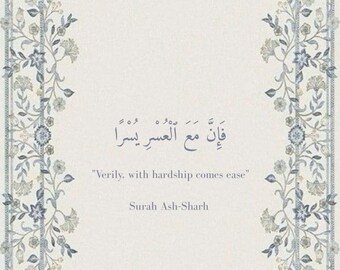 فَإِنَّ مَعَ ٱلْعُسْرِ يُسْرًا
"Verily, with hardship comes ease"
Surah Ash-Sharh